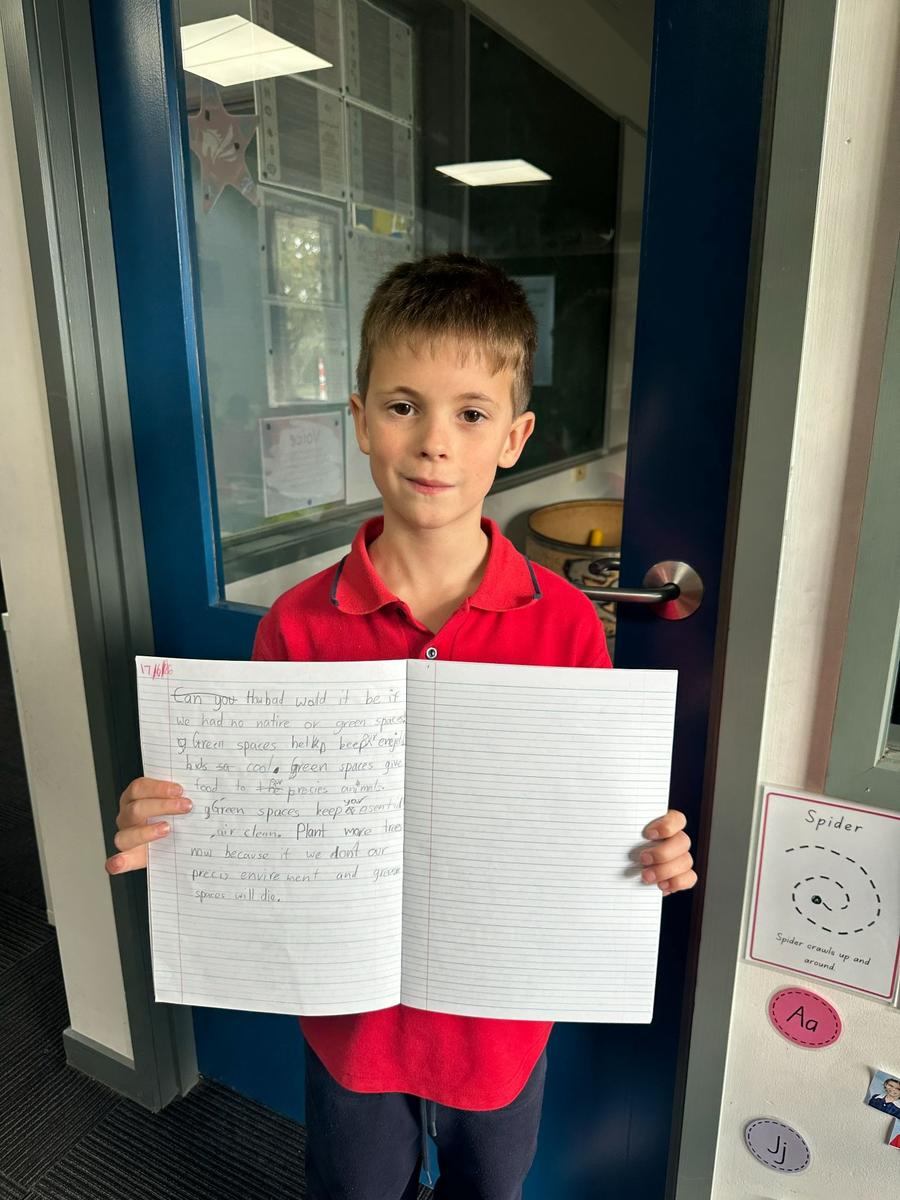 Voice
17/6/26
Can you Howbad wold it be if
we had no natire or green spaces
g Green spaces helkp keep
kids so cool. green spaces give
food to the precies animals.
gGreen spaces keep your esentul
air clean. Plant more trees
now because if we dont our
precis envirement and green
spaces will die.
Spider
Spider crawls up and
around.
Aa
Jj